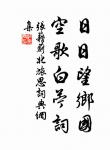 日日望鄉國
空歌白苧詞
張籍薊北旅思詞典網
集